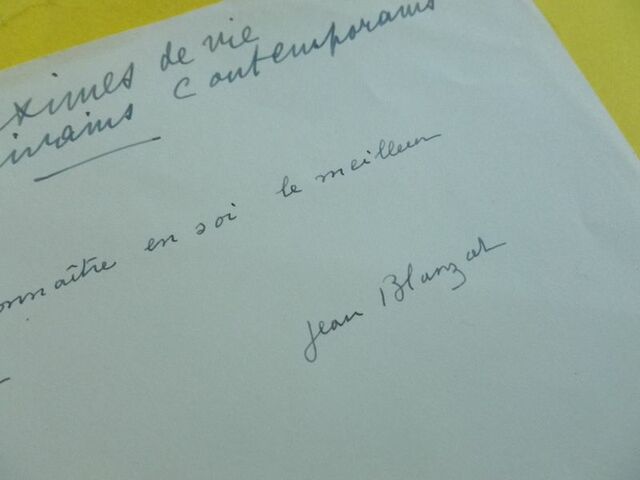 ximes de vie
ivains contemporains
onnaître en soi le meilleur
Jean Blanzat